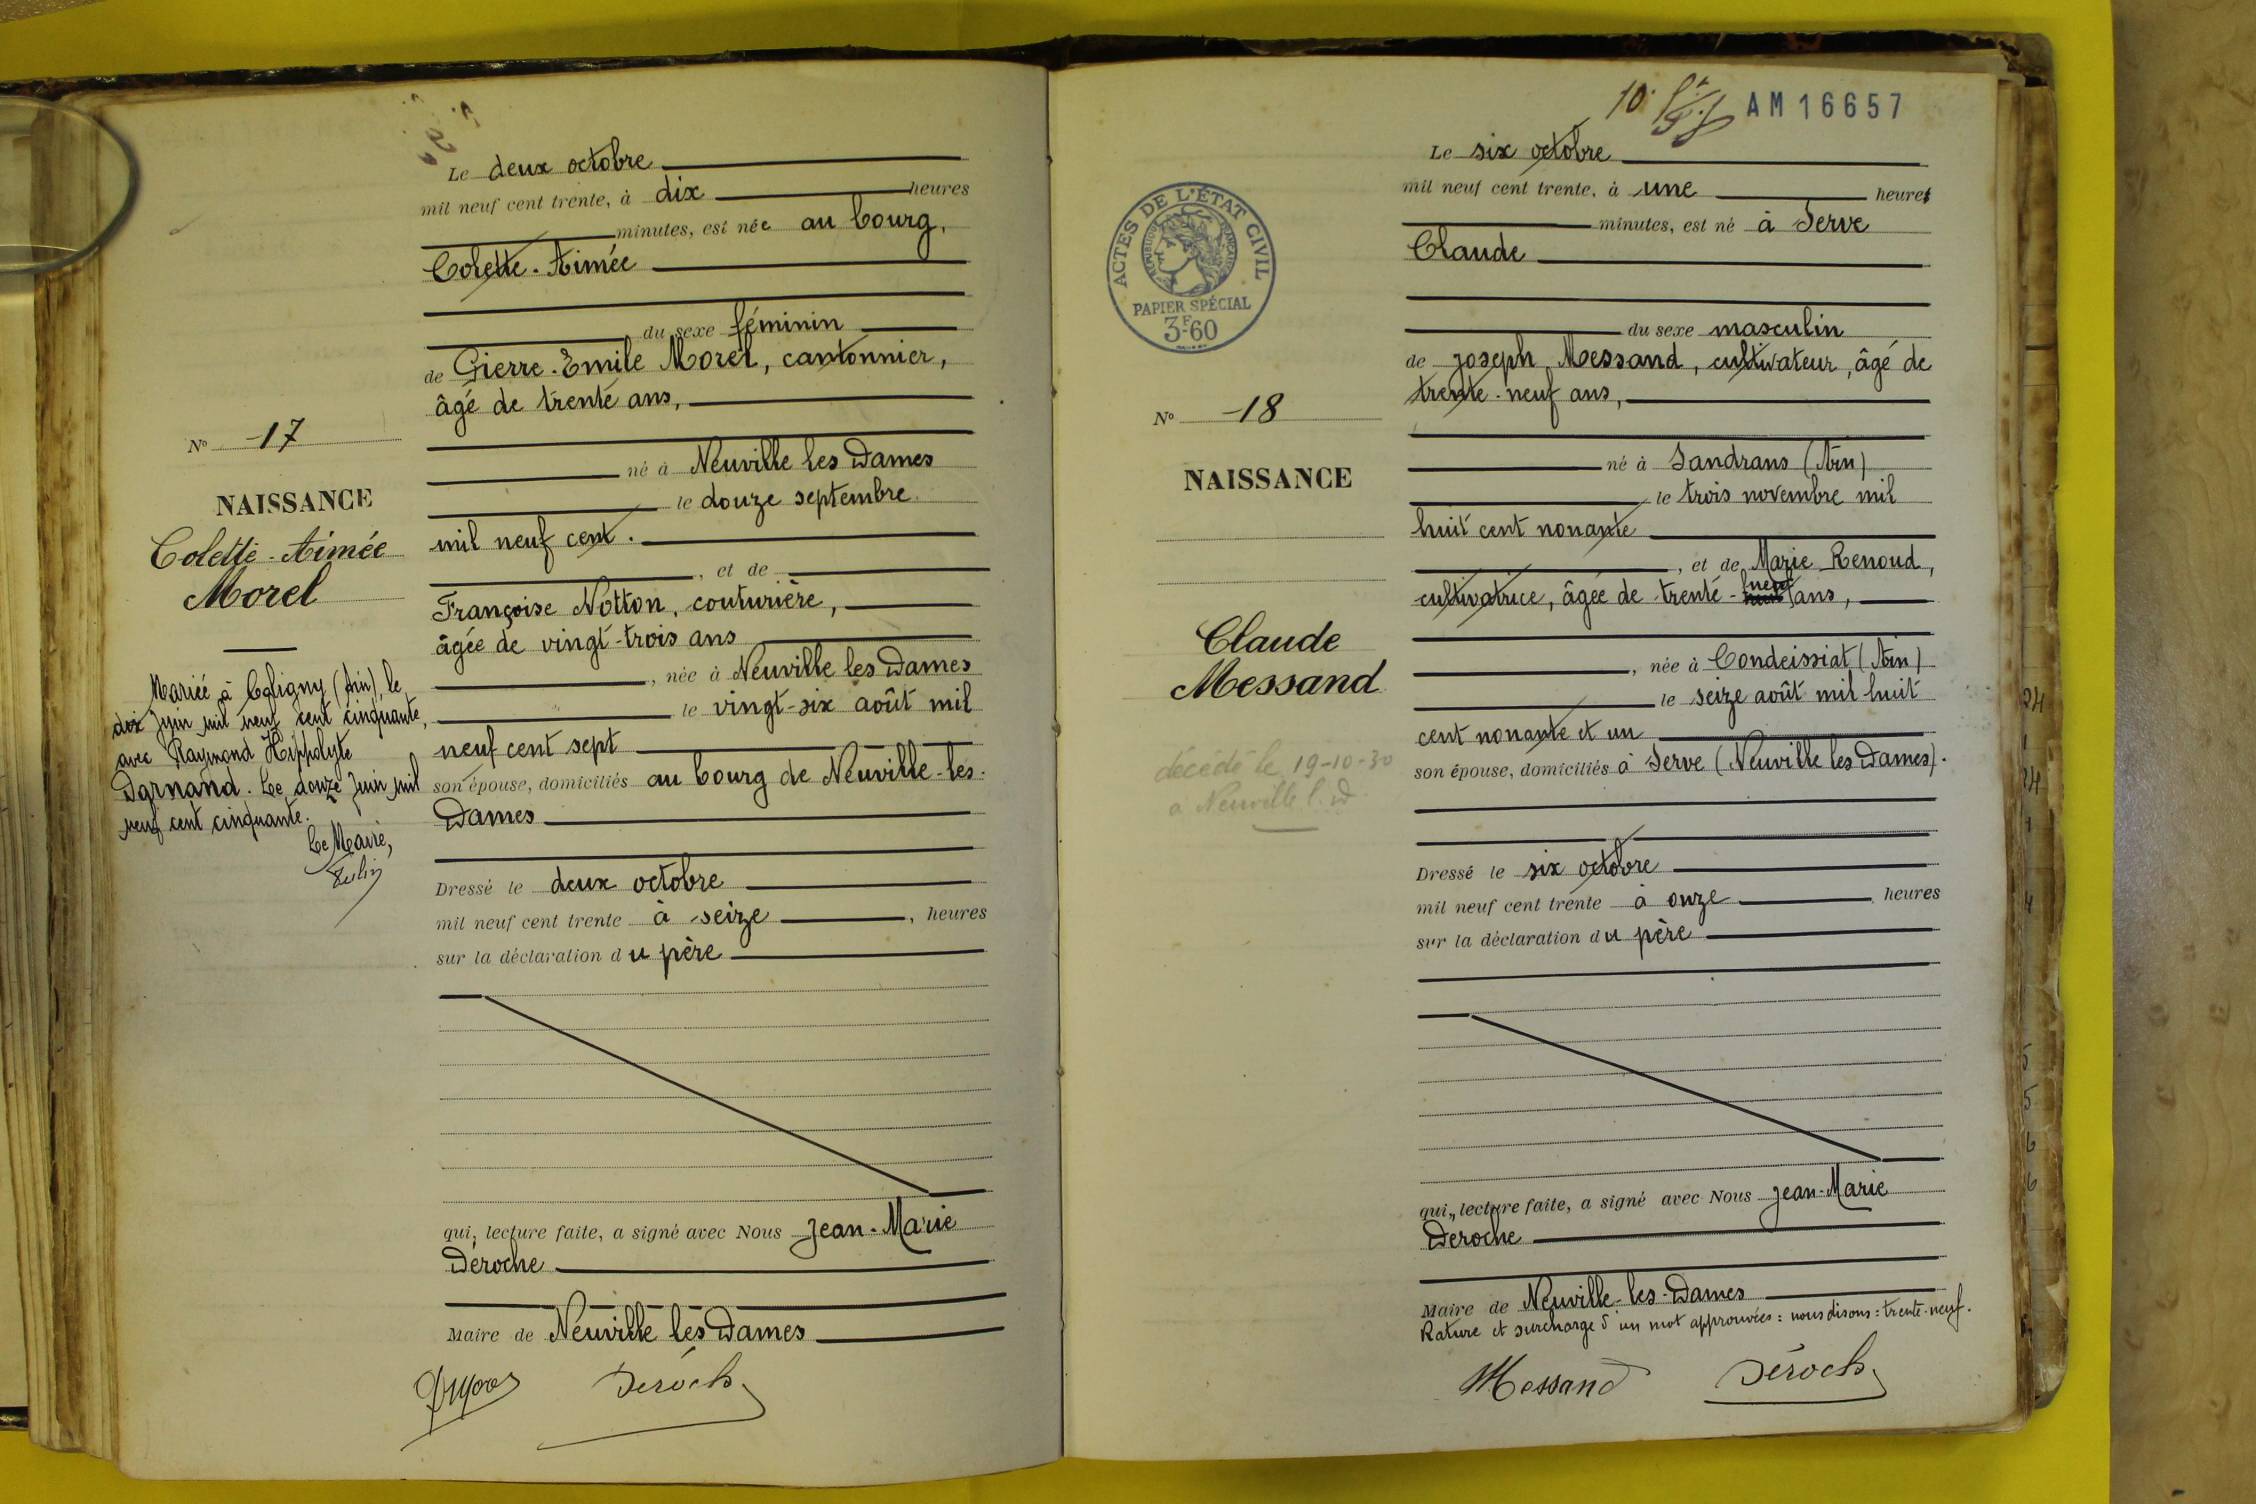 Le deux octobre
mil neuf cent trente, à dix heures
minutes, est née au bourg,
Colette-Aimée
du sexe féminin
de Pierre-Emile Morel, cantonnier,
âgé de trente ans,
né à Neuville les Dames
le douze septembre
mil neuf cent.
, et de
Françoise Notton, couturière,
âgée de vingt-trois ans
, née à Neuville les Dames
le vingt-six août mil
neuf cent sept
son épouse, domiciliés au bourg de Neuville-les-
Dames
Dressé le deux octobre
mil neuf cent trente à seize, heures
sur la déclaration du père
qui, lecture faite, a signé avec Nous Jean-Marie
Déroche
Maire de Neuville les Dames
Déroche
No 17
NAISSANCE
Colette-Aimée
Morel
Mariée à Coligny (Ain), le
dix juin mil neuf cent cinquante,
avec Raymond Hippolyte
Darnand. Le douze juin mil
neuf cent cinquante.
Le Maire,
10
AM 16657
ACTES DE L'ÉTAT CIVIL
RÉPUBLIQUE FRANÇAISE
PAPIER SPÉCIAL
3F.60
No 18
NAISSANCE
Claude
Messand
décédé le 19-10-30
à Neuville l. D
Le six octobre
mil neuf cent trente, à une heure
minutes, est né à Serve
Claude
du sexe masculin
de Joseph Messand, cultivateur, âgé de
trente-neuf ans,
né à Sandrans (Ain)
le trois novembre mil
huit cent nonante
, et de Marie Renoud,
cultivatrice, âgée de trente-neuf ans,
, née à Condeissiat (Ain)
le seize août mil huit
cent nonante et un
son épouse, domiciliés à Serve (Neuville les Dames).
Dressé le six octobre
mil neuf cent trente à onze heures
sur la déclaration du père
qui, lecture faite, a signé avec Nous Jean-Marie
Deroche
Maire de Neuville-les-Dames
Rature et surcharge d'un mot approuvées : nous disons : trente-neuf.
Messand Déroche